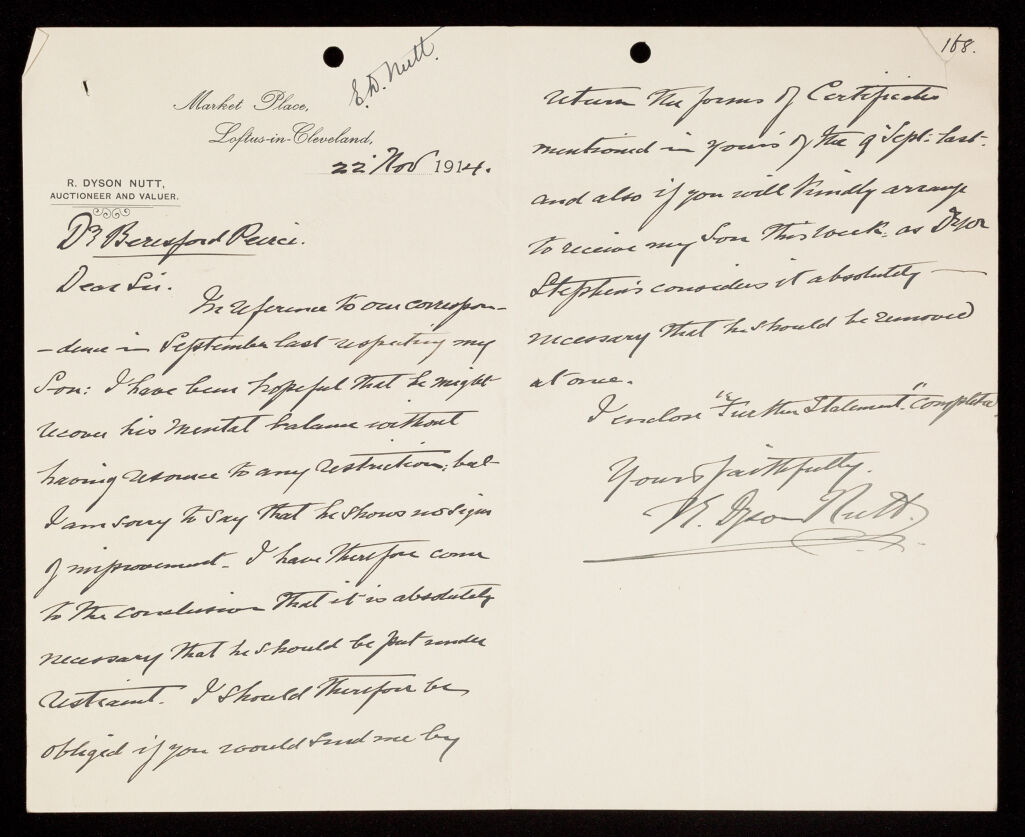 E. D. Nutt.
Market Place,
Loftus-in-Cleveland,
22 Nov 1914.
R. DYSON NUTT,
AUCTIONEER AND VALUER.
Dr Beresford Peirce.
Dear Sir.
In reference to our correspon-
-dence in September last respecting my
Son: I have been hopeful that he might
recover his Mental balance without
having resource to any restriction; but
I am sorry to say that he shows no signs
of improvement. I have therefore come
to the conclusion that it is absolutely
necessary that he should be put under
restraint. I should therefore be
obliged if you would send me by
168.
return the forms of Certificates
mentioned in yours of the 9 Sept: last.
and also if you will kindly arrange
to receive my Son this week. as Dr
Stephens considers it absolutely
necessary that he should be removed
at once.
I enclose "Further Statement" completed.
Yours faithfully.
R. Dyson Nutt.